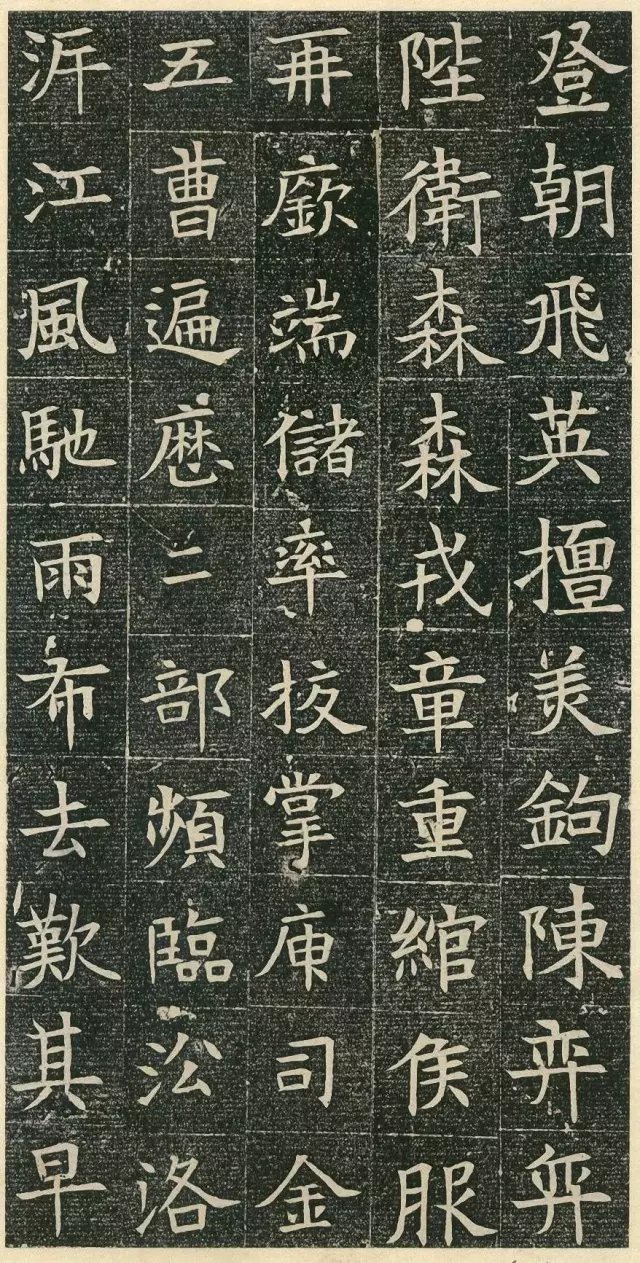 登朝飛英擅美鉤陳弈弈
陛衛森森戎章重綰侯服
再廞端儲率抜掌庫司金
五曹遍歷二部頻臨㳂洛
泝江風馳雨布去歎其早